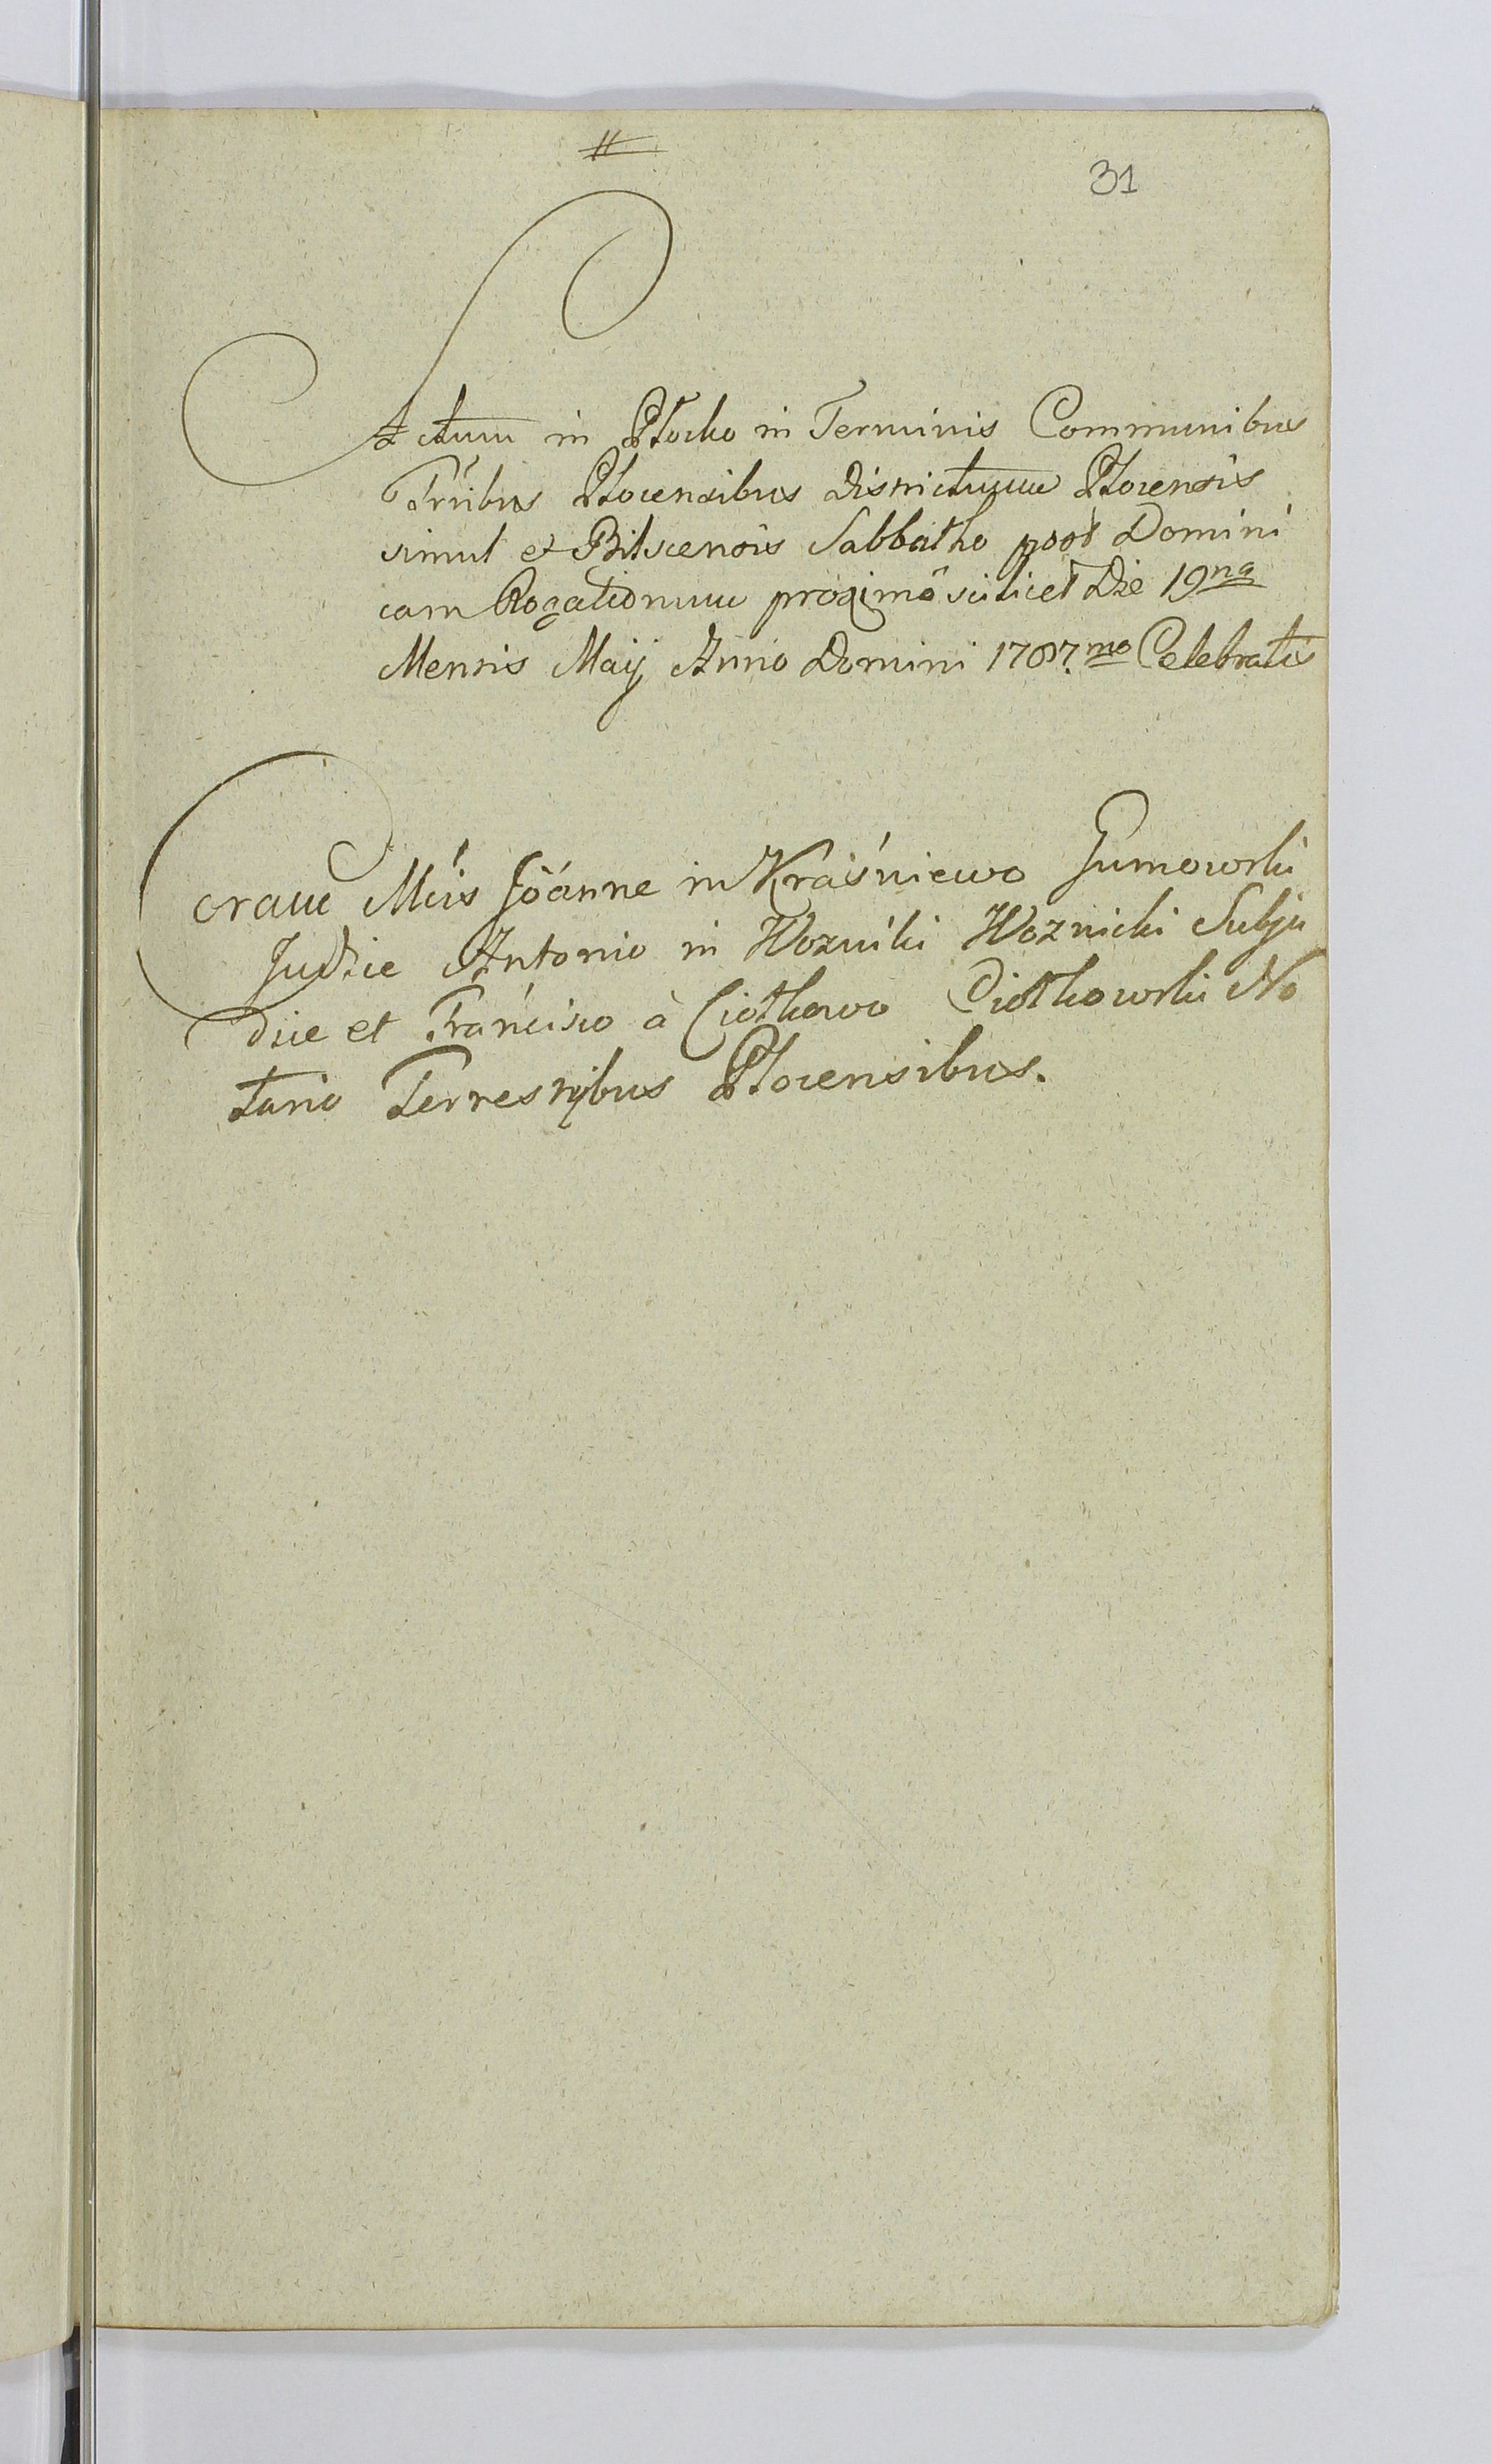 31
Actum in Płocko in Terminis Communibus
Trribus Plocensibus Districtuum Plocensis
simul et Bilscensis Sabbatho post Domini
cam Rogationum proximô scilicet Die 19na
Mensis Maij Anno Domini 1787.mo Celebratis
Coram Mcis Joãnne in Kraśniewo Gumowski
Judice Antonio in Wozniki Woznicki Subju
dice et Francisco à Ciołkowo Ciołkowski No
tario Terrestribus Plocensibus.